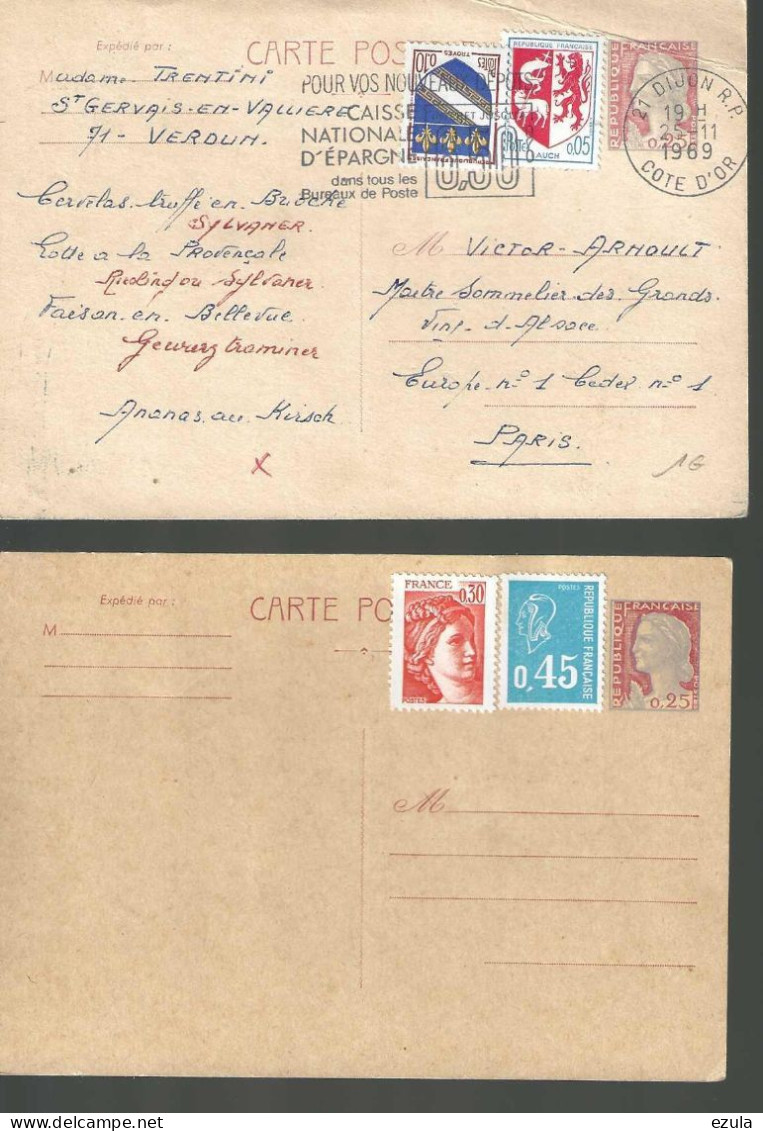 Expédié par :
CARTE POS
Madame TRENTINI
ST GERVAIS-EN-VALLIERE
71 - VERDUN.
POUR VOS NOUVEAUX DEPOTS
CAISSE ET JUSQU
NATIONALE
D'ÉPARGNE
dans tous les
Bureaux de Poste
TROYES
0,10
RÉPUBLIQUE FRANÇAISE
AUCH
0,05
REPUBLIQUE FRANÇAISE
0,25
21 DIJON R.P.
19 H
25-11
1969
COTE D'OR
Cervelas truffé en Brioche
SYLVANER.
Lotte a la Provençale
Riesling ou Sylvaner
Faisan en Bellevue
Geuverztraminer
Ananas au Kirsch
X
M VICTOR-ARNOULT
Maitre Sommelier des Grands
Vins d'Alsace
Europe n° 1 Cedex n° 1
PARIS.
1G
Expédié par :
CARTE PO
M
FRANCE
0.30
POSTES
POSTES
REPUBLIQUE FRANÇAISE
0,45
REPUBLIQUE FRANÇAISE
0,25
M
ezula